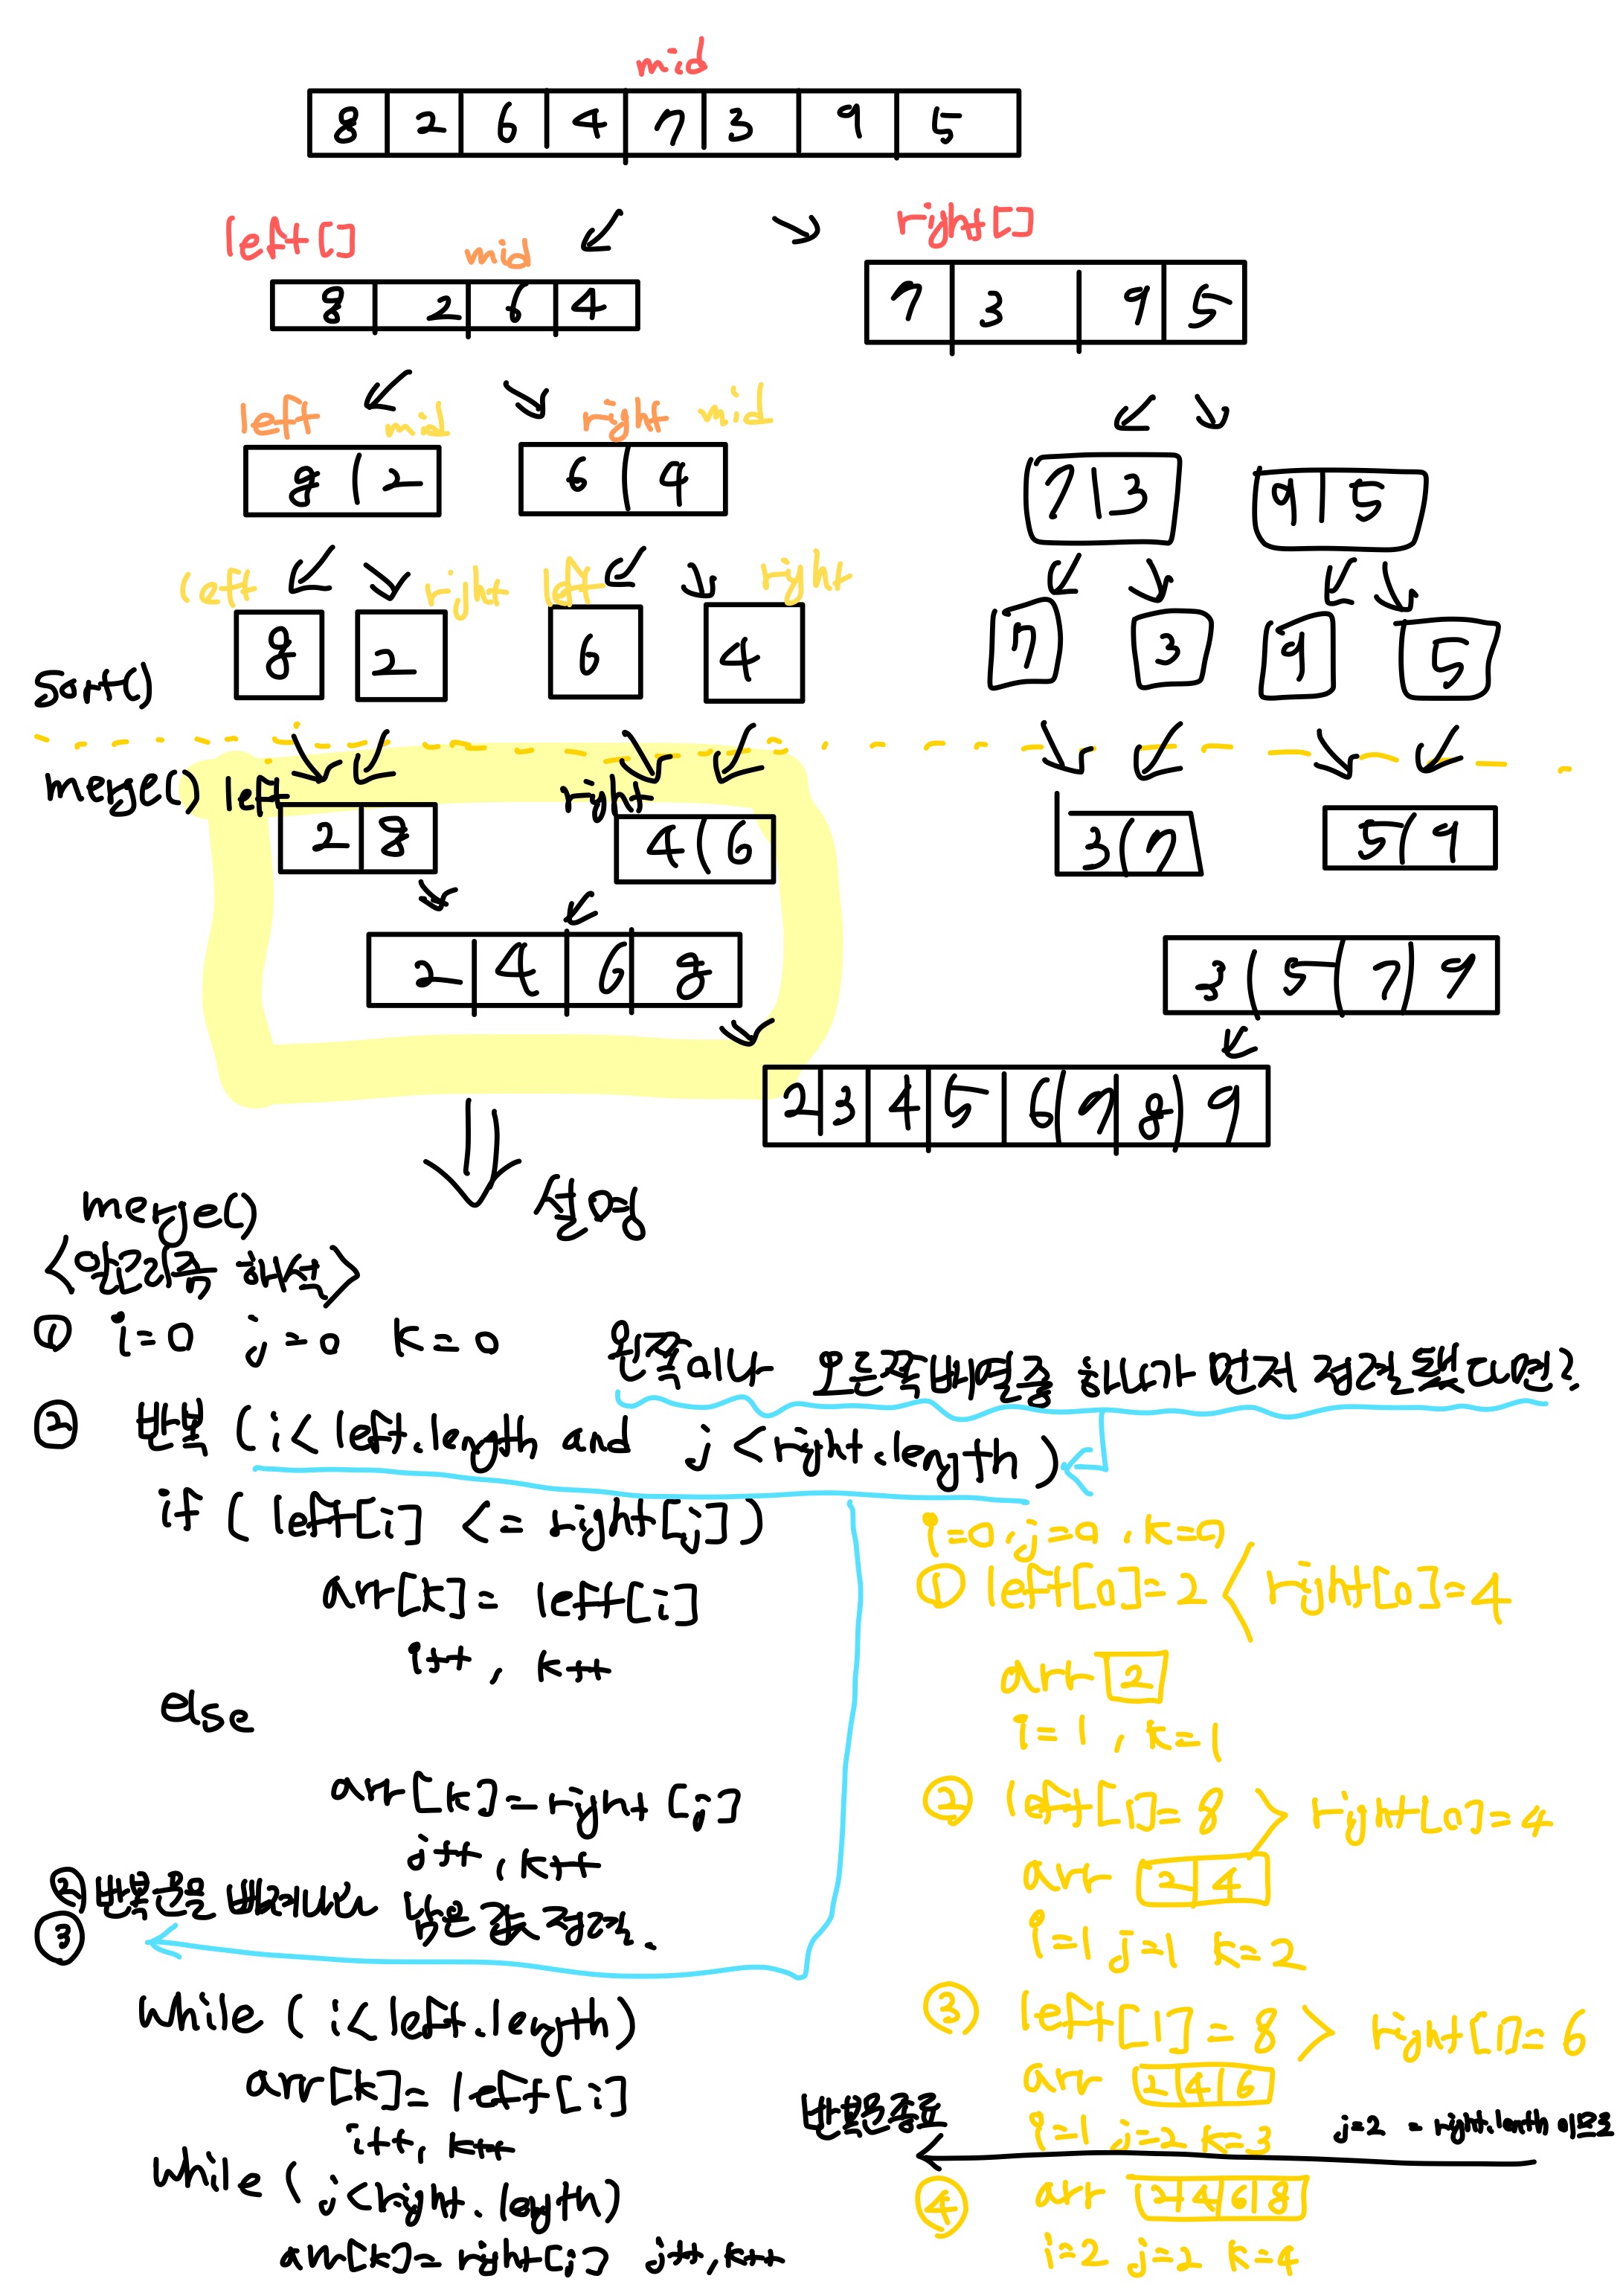 mid
8 2 6 4 7 3 9 5
left[] right[]
mid
8 2 6 4 7 3 9 5
left mid right mid
8 2 6 4 7 3 9 5
left right left right
8 2 6 4 7 3 9 5
sort()
merge() left right
2 8 4 6 3 7 5 9
2 4 6 8 3 5 7 9
2 3 4 5 6 7 8 9
설명
merge()
<알고리즘 해석>
① i=0 j=0 k=0
왼쪽이나 오른쪽배열중 하나가 먼저 정렬됐다면?
② 반복 (i< left.length and j<right.length)
if ( left[i] <= right[j])
arr[k]= left[i]
i++, k++
else
arr[k]=right[j]
j++, k++
② 반복문을 빠져나와 남은 값 정렬.
③
while (i<left.length)
arr[k]=left[i]
i++, k++
while (j<right.length)
arr[k]=right[i] j++, k++
i=0, j=0, k=0
① left[0]=2 < right[0]=4
arr 2
i=1, k=1
② left[1]=8 > right[0]=4
arr 2 4
i=1 j=1 k=2
③ left[1]=8 > right[1]=6
arr 2 4 6
i=1 j=2 k=3
반복문종료 j=2 = right.length 이므로
④ arr 2 4 6 8
i=2 j=2 k=4